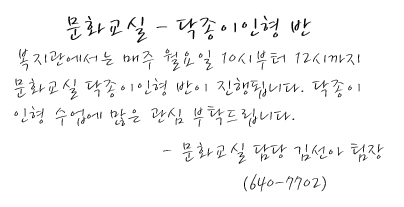 문화교실 - 닥종이인형 반
복지관에서는 매주 월요일 10시부터 12시까지
문화교실 닥종이인형 반이 진행됩니다. 닥종이
인형 수업에 많은 관심 부탁드립니다.
- 문화교실 담당 김선아 팀장
(640-7702)